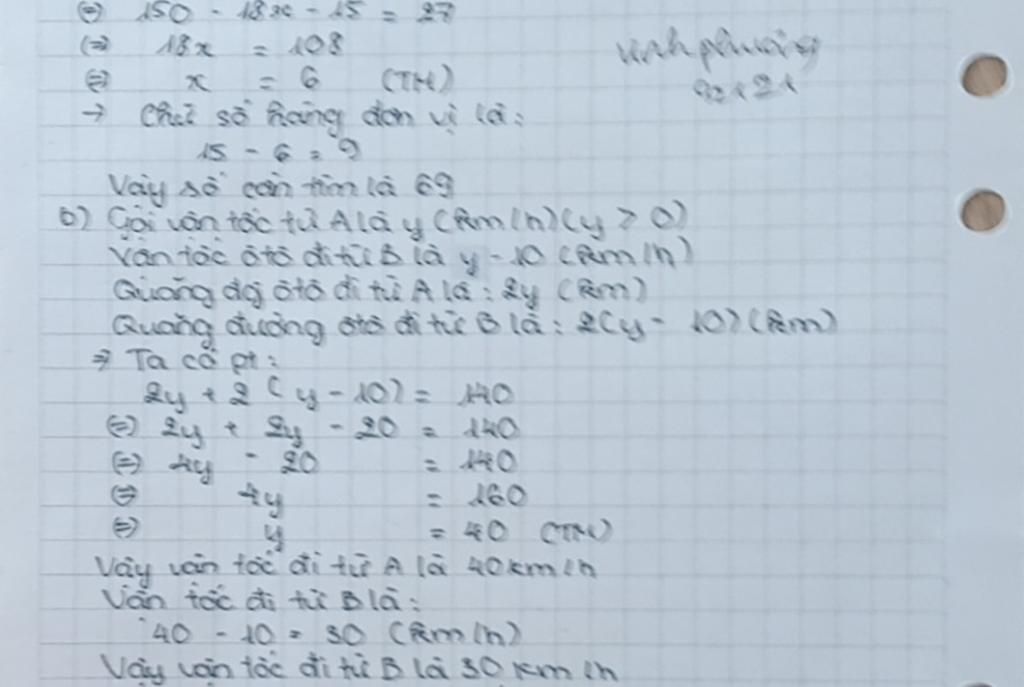 ⇔ 150 - 18x - 15 = 27
⇔ 18x = 108
⇔ x = 6 (TM)
→ Chữ số hàng đơn vị là:
15 - 6 = 9
Vậy số cần tìm là 69
b) Gọi vận tốc từ A là y (km/h) (y > 0)
Vận tốc ôtô đi từ B là y - 10 (km/h)
Quãng dg ôtô đi từ A là: 2y (km)
Quãng đường ôtô đi từ B là: 2(y - 10) (km)
⇒ Ta có pt:
2y + 2(y - 10) = 140
⇔ 2y + 2y - 20 = 140
⇔ 4y - 20 = 140
⇔ 4y = 160
⇔ y = 40 (TM)
Vậy vận tốc đi từ A là 40km/h
Vận tốc đi từ B là:
40 - 10 = 30 (km/h)
Vậy vận tốc đi từ B là 30km/h